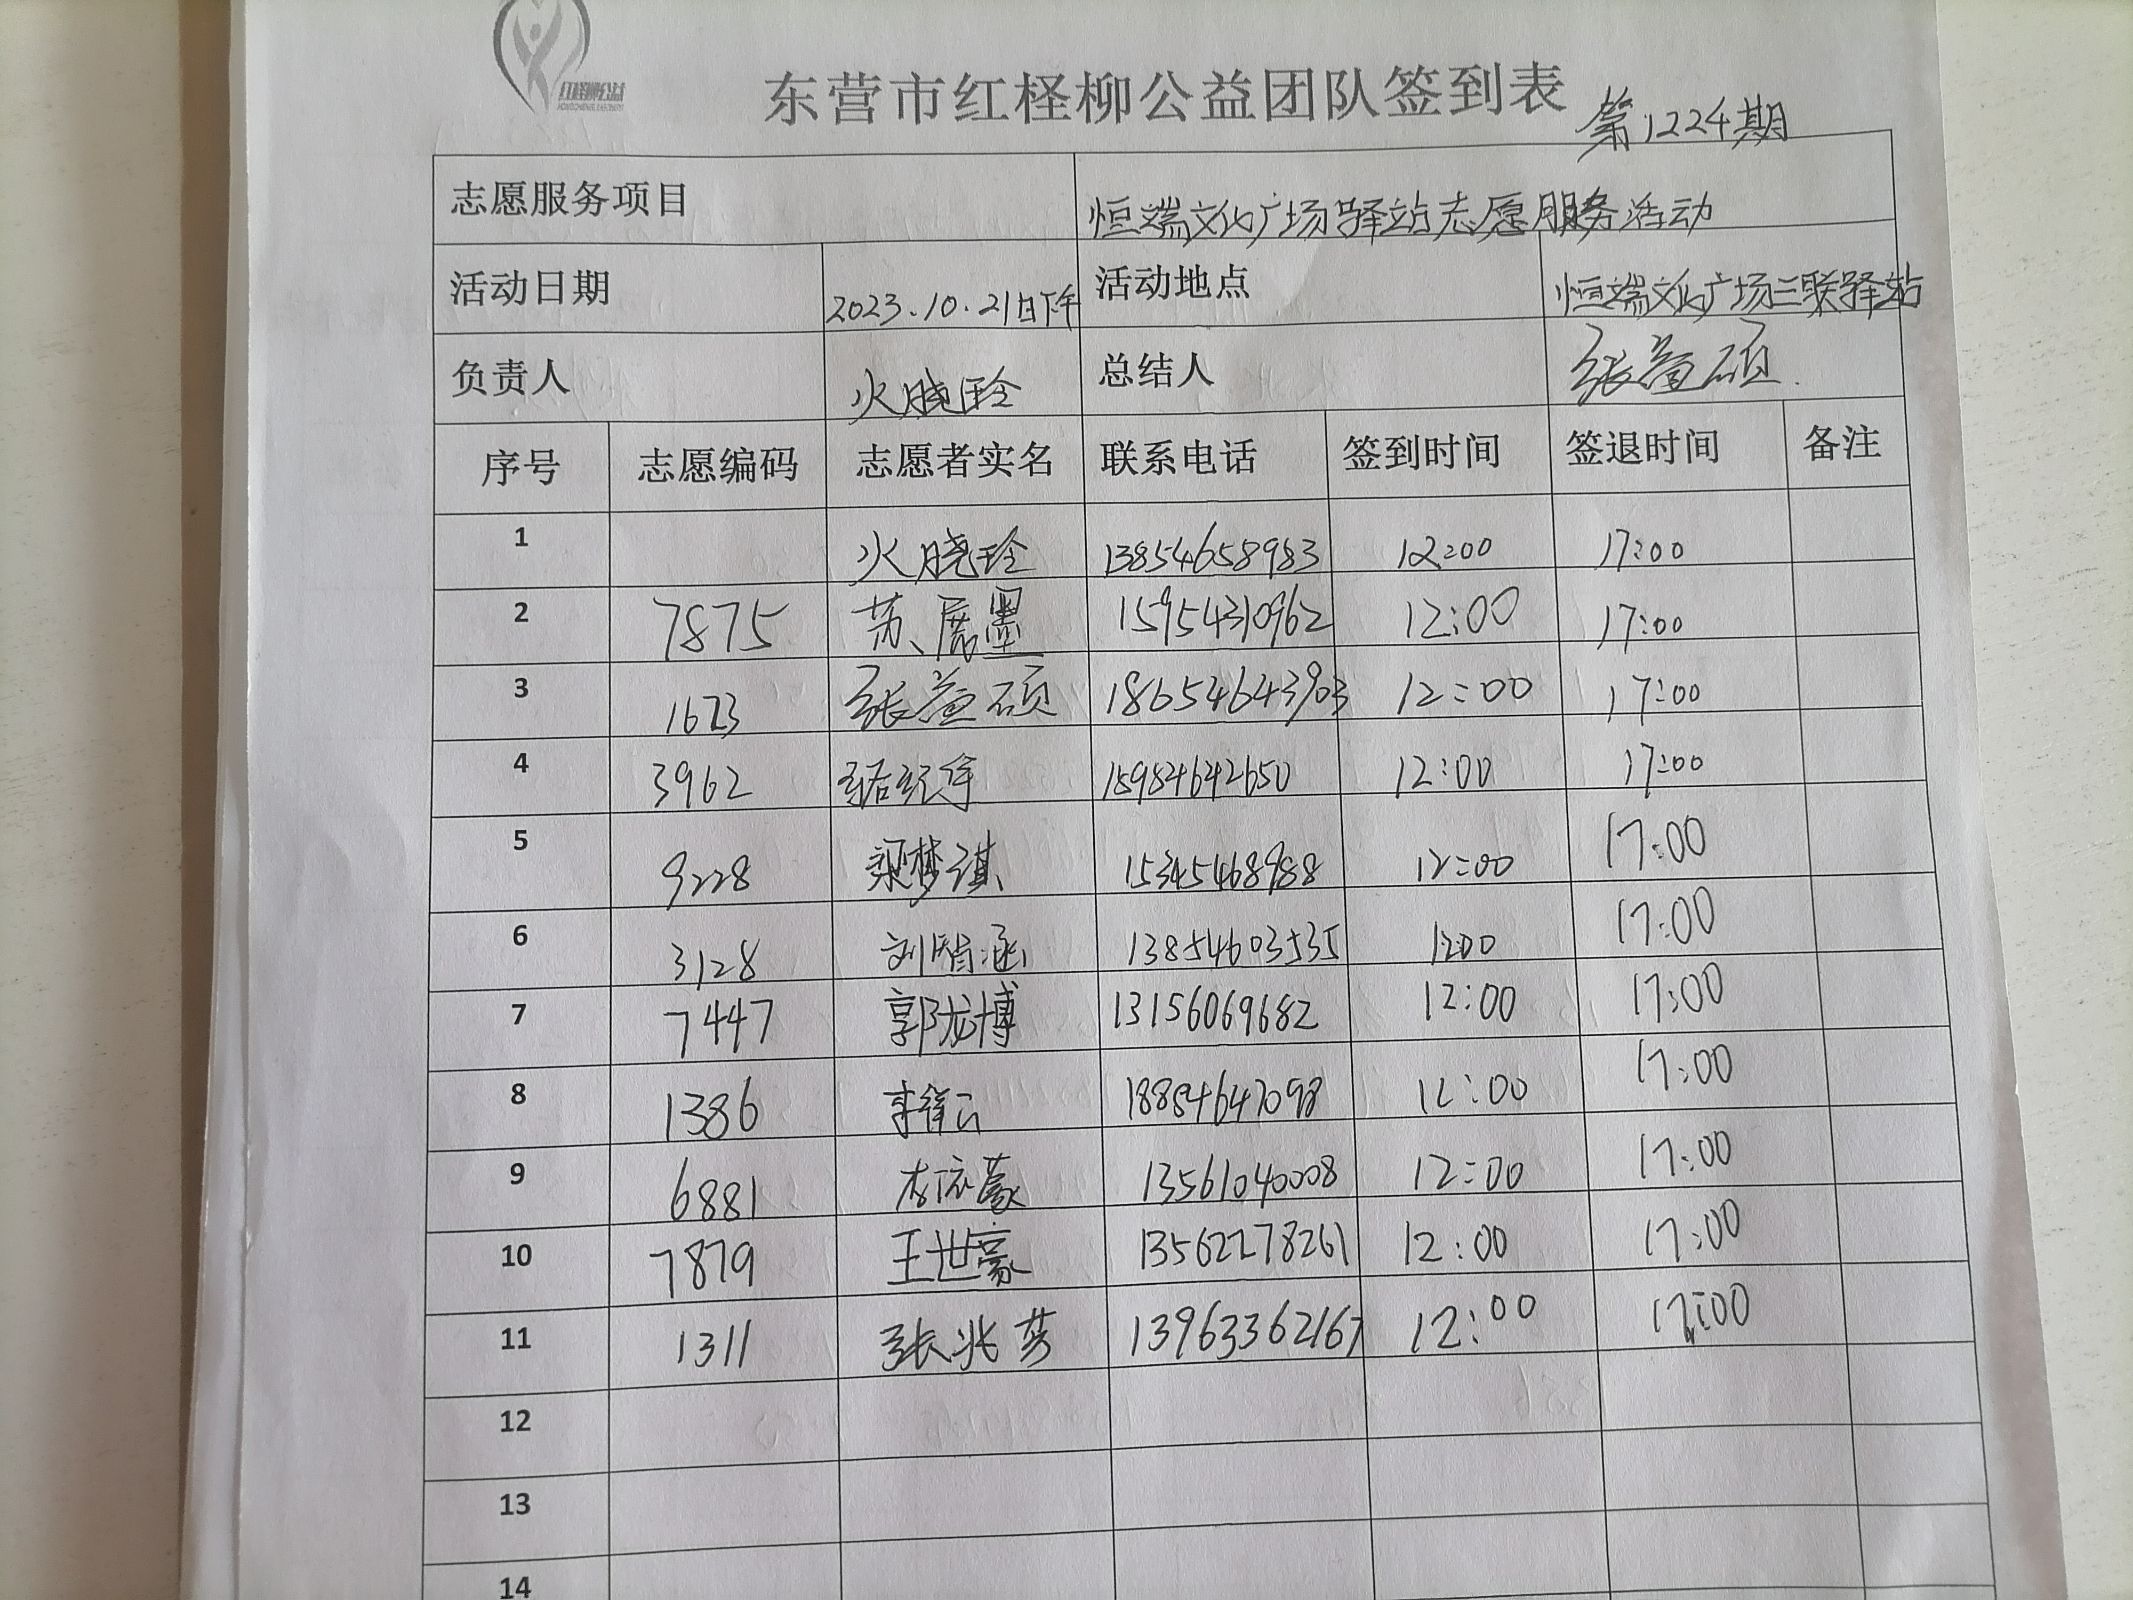 红柽柳公益
东营市红柽柳公益团队签到表
第1224期
志愿服务项目 恒端文化广场驿站志愿服务活动
活动日期 2023.10.21日下午 活动地点 恒端文化广场三联驿站
负责人 火晓玲 总结人 张益硕
序号 志愿编码 志愿者实名 联系电话 签到时间 签退时间 备注
1 火晓玲 13854658983 12:00 17:00
2 7875 苏展墨 15954310962 12:00 17:00
3 1623 张益硕 18654643903 12:00 17:00
4 3962 15984642650 12:00 17:00
5 9228 梁梦琪 15345468988 12:00 17:00
6 3128 刘 涵 13854603535 12:00 17:00
7 7447 郭龙博 13156069682 12:00 17:00
8 1386 李 云 18854647098 12:00 17:00
9 6881 李依蒙 13561040008 12:00 17:00
10 7879 王世豪 13562278261 12:00 17:00
11 1311 张兆芳 13963362167 12:00 17:00
12
13
14